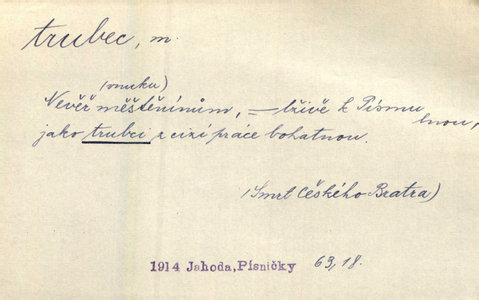 trubec, m.
(mnku)
Nevěř měštěnínům, – lživě k Písmu
lnou,
jako trubci z cizí práce bohatnou.
(Smrt Českého Bratra)
1914 Jahoda, Písničky 69, 18.